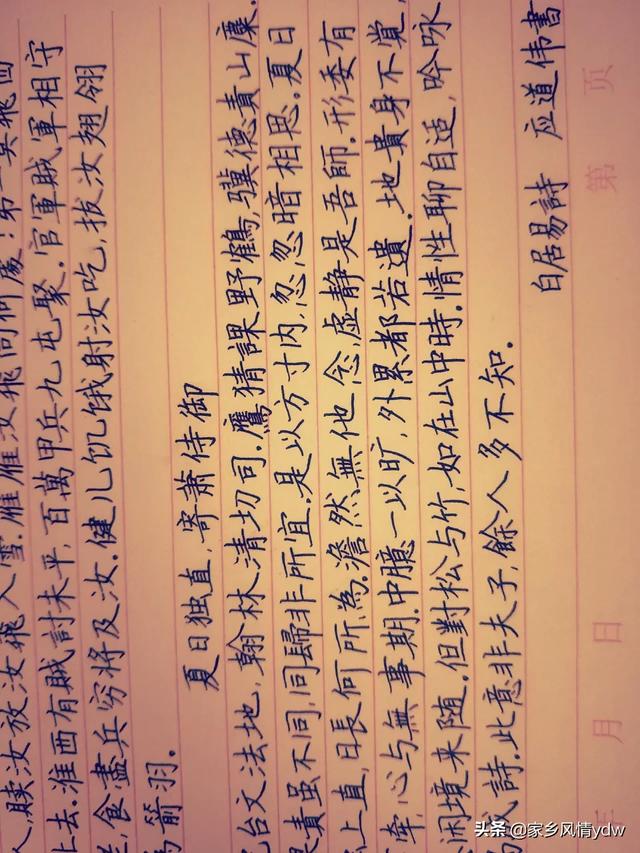 人,赎汝放汝飛入雪.雁雁汝飛向何處:第一莫飛西
去.淮西有賊討未平,百萬甲兵九屯聚.官軍賊軍相守
食盡兵穷將及汝.健儿饥饿射汝吃,拔汝翅翎
為箭羽.
夏日独直,寄萧侍御
台文法地,翰林清切司.鷹猜課野鶴,驥德責山麋.
責虽不同,同歸非所宜.是以方寸内,忽忽暗相思.夏日
上直,日長何所為.澹然無他念,虚静是吾師.形委有
牽,心与無事期.中臆一以旷,外累都若遺.地貴身不覺,
闲境来随.但對松与竹,如在山中時.情性聊自适,吟咏
成詩.此意非夫子,餘人多不知.
白居易詩 应道伟書
第 页
年 月 日
头条 @家乡风情ydw